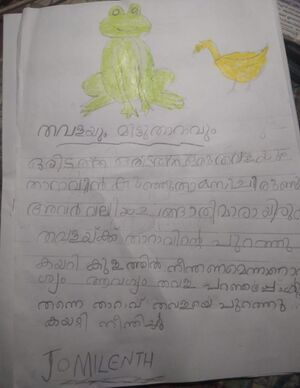 തവളയും മിട്ടുതാറാവും
ഒരിടത്ത് ഒരു തവളയും
താറാവും താമസിച്ചിരുന്നു
അവർ വലിയ ചങ്ങാതിമാരായിരു
തവളയ്ക്ക് താറാവിന്റെ പുറത്തു
കയറി കുളത്തിൽ നീന്തണമെന്നാ
ശ്യം ആവശ്യം തവള പറഞ്ഞപ്പോൾ
തന്നെ താറാവ് തവളയെ പുറത്തു
കയറ്റി നീന്തിച്ചു
JOMILENTH